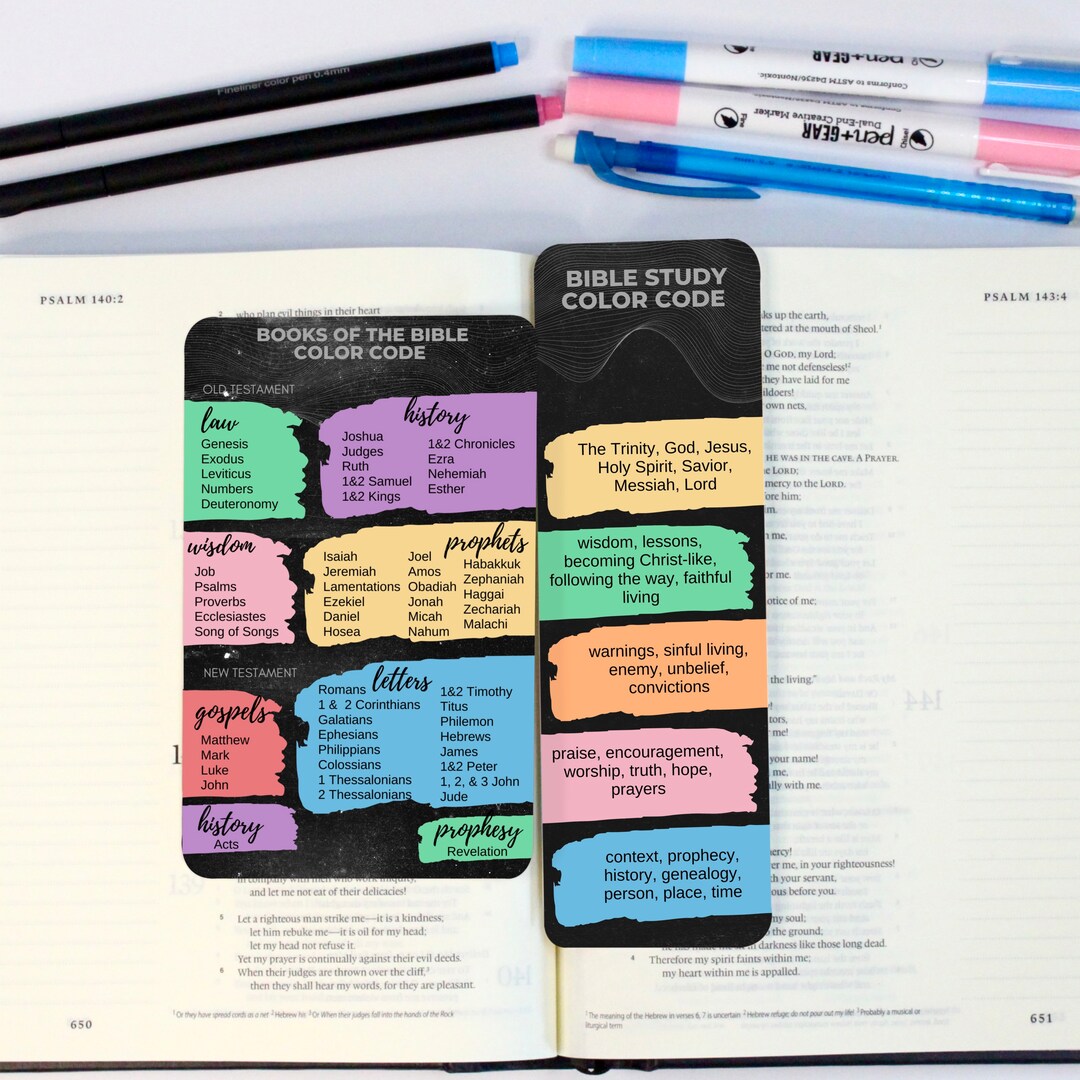 Fineliner color pen 0.4mm
pen+GEAR
Conforms to ASTM D4236/Nontoxic
Dual-End Creative Marker
pen+GEAR
Chisel
Fine
PSALM 140:2
PSALM 143:4
2 who plan evil things in their heart
BOOKS OF THE BIBLE
COLOR CODE
OLD TESTAMENT
law
Genesis
Exodus
Leviticus
Numbers
Deuteronomy
history
Joshua
Judges
Ruth
1&2 Samuel
1&2 Kings
1&2 Chronicles
Ezra
Nehemiah
Esther
wisdom
Job
Psalms
Proverbs
Ecclesiastes
Song of Songs
prophets
Isaiah
Jeremiah
Lamentations
Ezekiel
Daniel
Hosea
Joel
Amos
Obadiah
Jonah
Micah
Nahum
Habakkuk
Zephaniah
Haggai
Zechariah
Malachi
NEW TESTAMENT
gospels
Matthew
Mark
Luke
John
letters
Romans
1 & 2 Corinthians
Galatians
Ephesians
Philippians
Colossians
1 Thessalonians
2 Thessalonians
1&2 Timothy
Titus
Philemon
Hebrews
James
1&2 Peter
1, 2, & 3 John
Jude
history
Acts
prophesy
Revelation
in company with men who work iniquity,
and let me not eat of their delicacies!
5 Let a righteous man strike me—it is a kindness;
let him rebuke me—it is oil for my head;
let my head not refuse it.
Yet my prayer is continually against their evil deeds.
6 When their judges are thrown over the cliff,3
then they shall hear my words, for they are pleasant.
1 Or they have spread cords as a net 2 Hebrew his 3 Or When their judges fall into the hands of the Rock
650
BIBLE STUDY
COLOR CODE
The Trinity, God, Jesus,
Holy Spirit, Savior,
Messiah, Lord
wisdom, lessons,
becoming Christ-like,
following the way, faithful
living
warnings, sinful living,
enemy, unbelief,
convictions
praise, encouragement,
worship, truth, hope,
prayers
context, prophecy,
history, genealogy,
person, place, time
up the earth,
at the mouth of Sheol.1
O GOD, my Lord;
me not defenseless!2
they have laid for me
own nets,
HE WAS IN THE CAVE. A PRAYER.
LORD;
mercy to the LORD.
him;
me,
or me.
notice of me;
the living."
me!
your name!
me,
with me.
me, in your righteousness!
your servant,
before you.
my soul;
the ground;
in darkness like those long dead.
4 Therefore my spirit faints within me;
my heart within me is appalled.
1 The meaning of the Hebrew in verses 6, 7 is uncertain 2 Hebrew refuge; do not pour out my life! 3 Probably a musical or
liturgical term
651